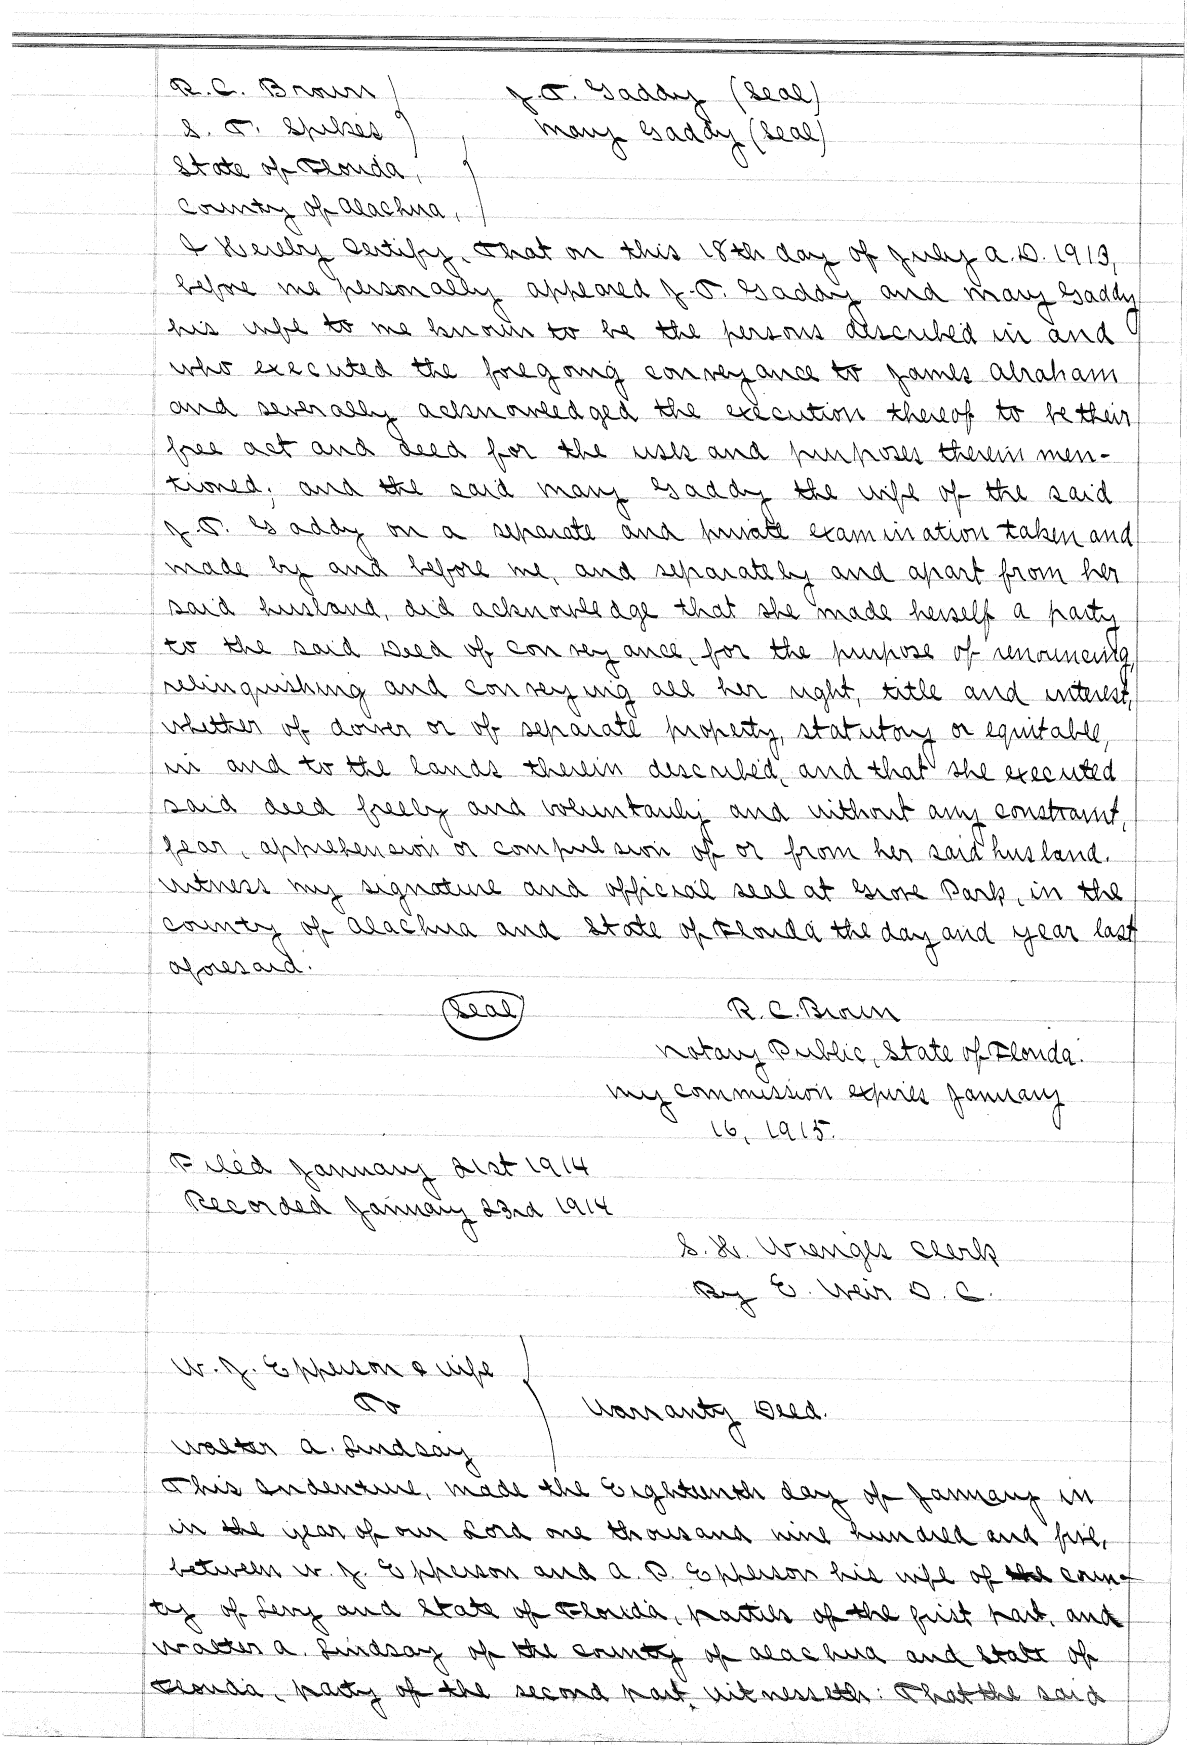 R. C. Brown J. T. Gaddy (Seal)
S. T. Spikes Mary Gaddy (Seal)
State of Florida,
County of Alachua,
I Hereby Certify, That on this 18th day of July A.D. 1913,
before me personally appeared J. T. Gaddy and Mary Gaddy
his wife to me known to be the persons described in and
who executed the foregoing conveyance to James Abraham
and severally acknowledged the execution thereof to be their
free act and deed for the uses and purposes therein men-
tioned; and the said Mary Gaddy the wife of the said
J. T. Gaddy on a separate and private examination taken and
made by and before me, and separately and apart from her
said husband, did acknowledge that she made herself a party
to the said Deed of conveyance, for the purpose of renouncing,
relinquishing and conveying all her right, title and interest,
whether of dower or of separate property, statutory or equitable,
in and to the lands therein described, and that she executed
said deed freely and voluntarily and without any constraint,
fear, apprehension or compulsion of or from her said husband.
Witness my signature and official seal at Grove Park, in the
County of Alachua and State of Florida the day and year last
aforesaid.
(Seal) R. C. Brown
Notary Public, State of Florida.
My commission expires January
16, 1915.
Filed January 21st 1914
Recorded January 23rd 1914
S. H. Wienges Clerk
By E. Weir D. C.
W. J. Epperson & wife
To Warranty Deed.
Walter A. Lindsay
This Indenture, made the Eighteenth day of January in
in the year of our Lord one thousand nine hundred and five,
between W. J. Epperson and A. P. Epperson his wife of the coun-
ty of Levy and State of Florida, parties of the first part, and
Walter A. Lindsay of the County of Alachua and State of
Florida, party of the second part, witnesseth: That the said